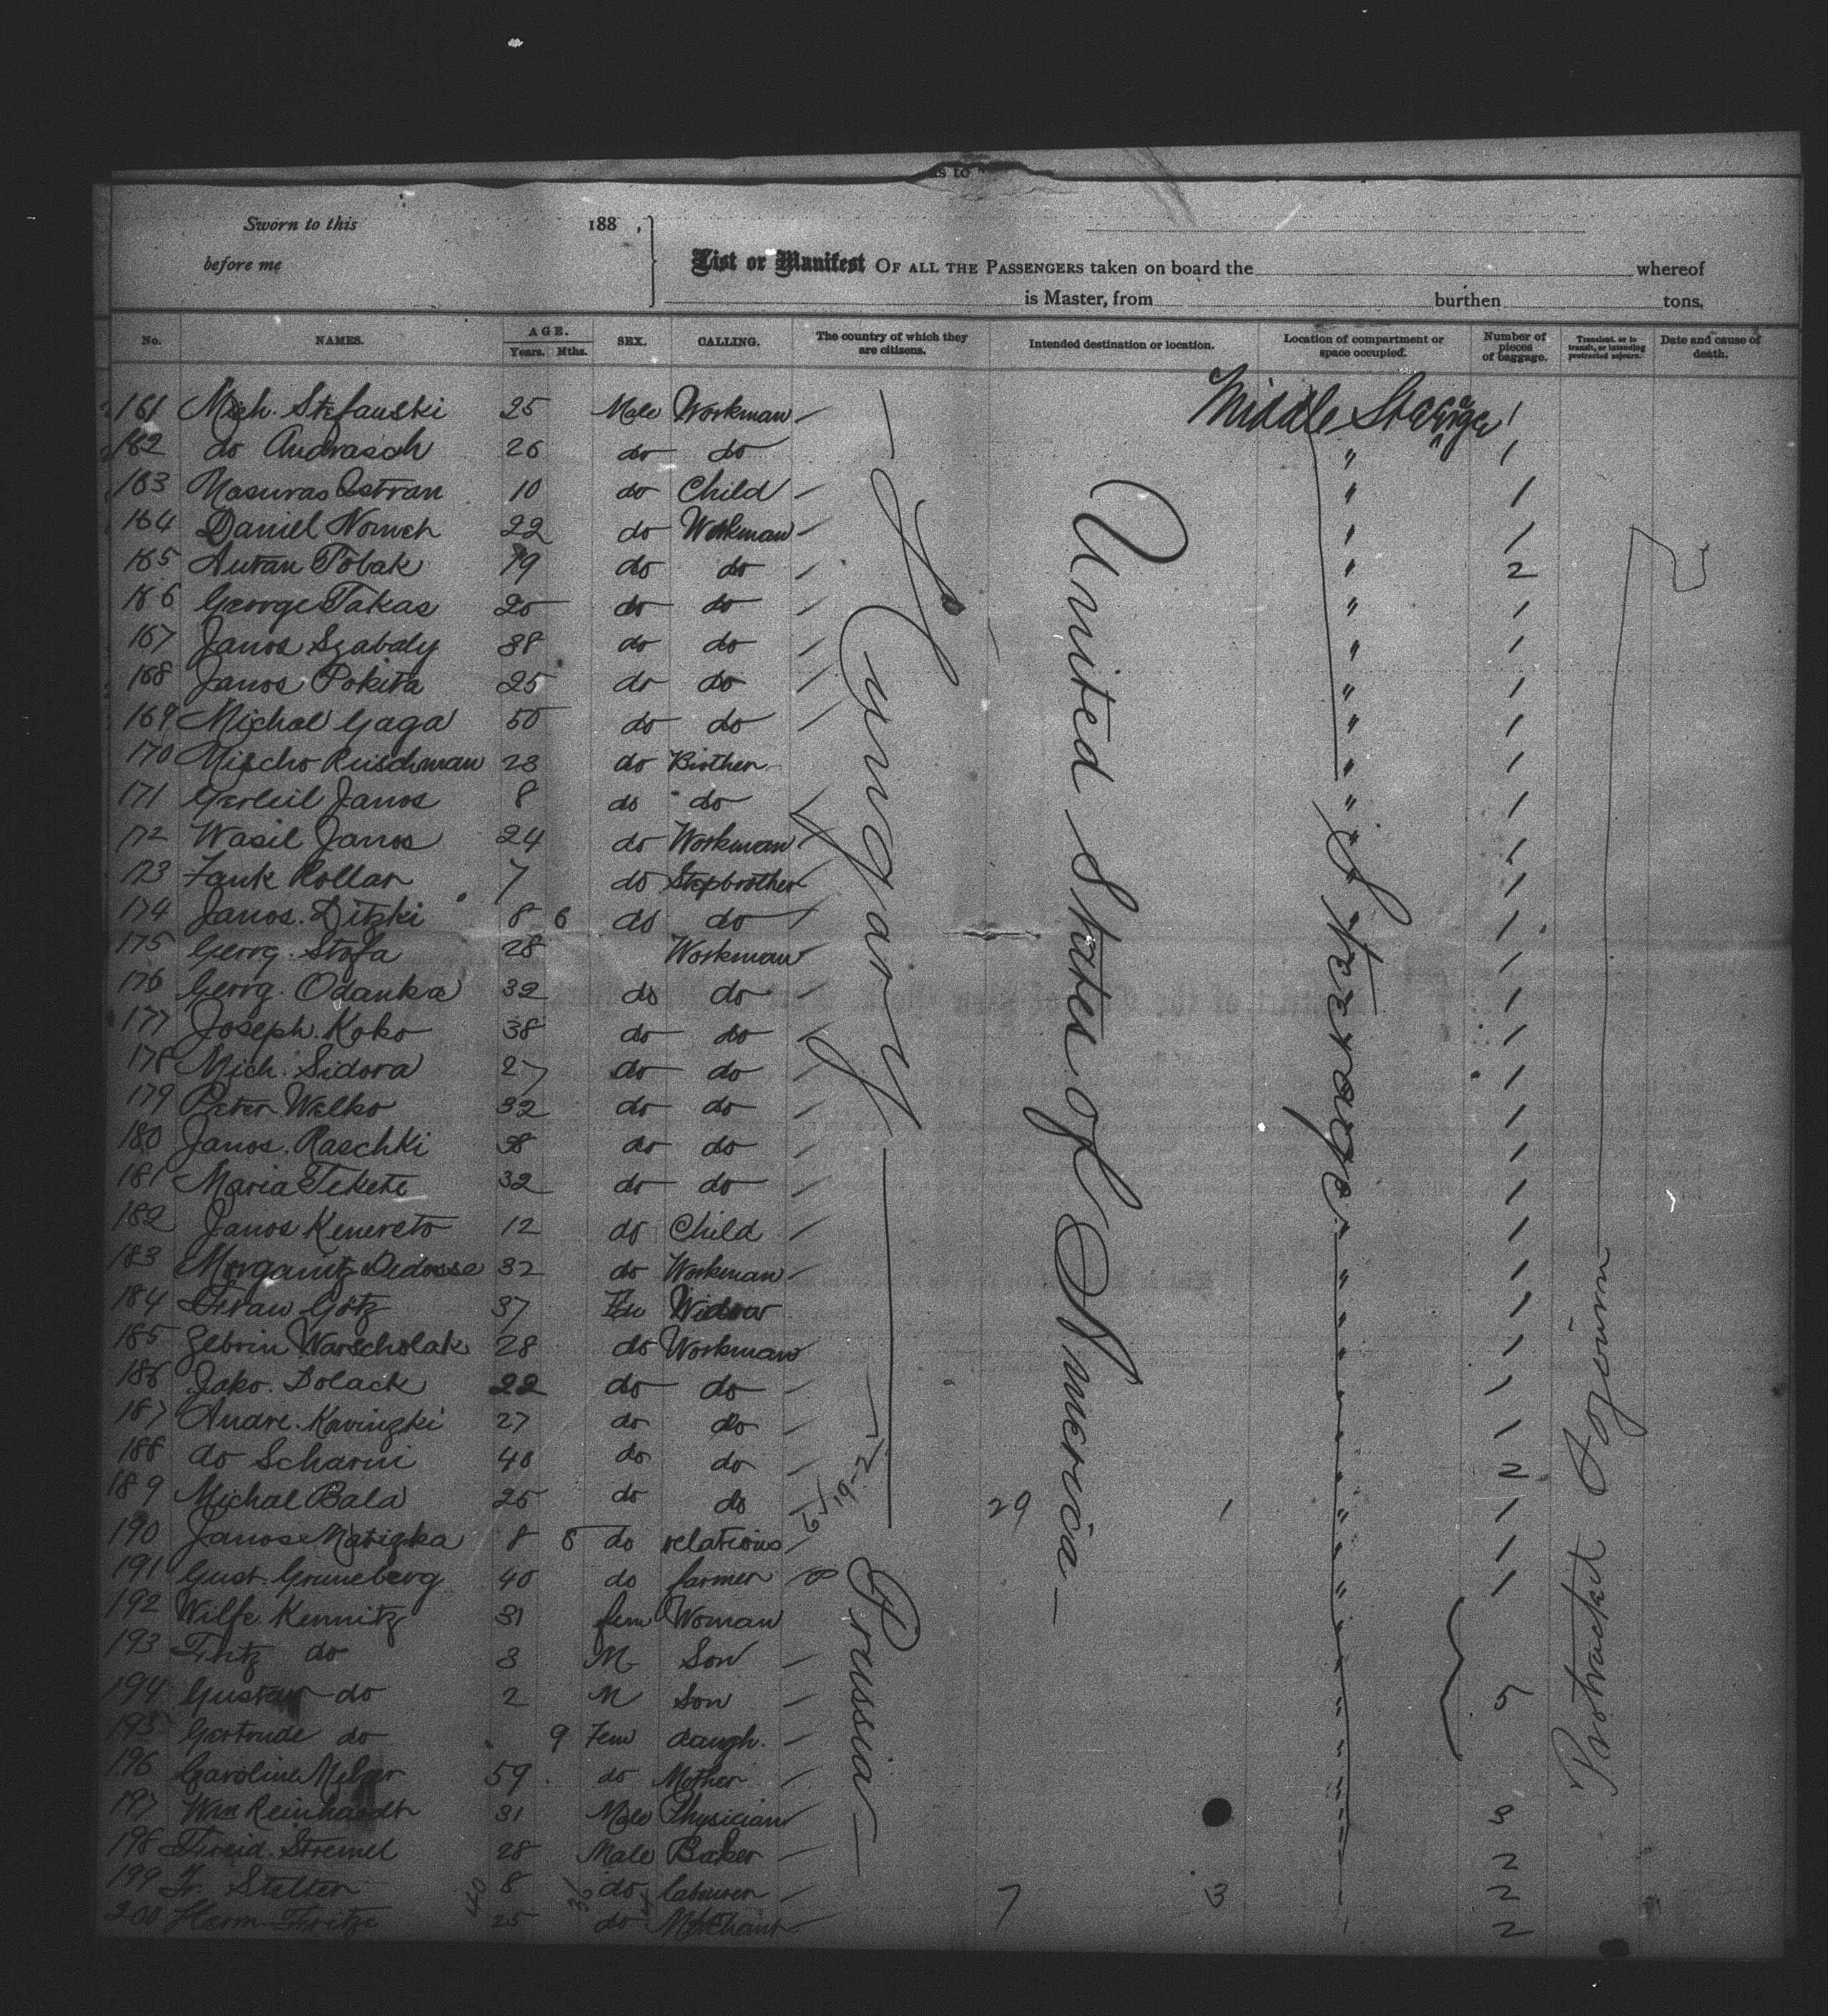 as to
Sworn to this 188 ,
before me
List or Manifest OF ALL THE PASSENGERS taken on board the whereof
is Master, from burthen tons.
No. NAMES. AGE. Years. Mths. SEX. CALLING. The country of which they are citizens. Intended destination or location. Location of compartment or space occupied. Number of pieces of baggage. Transient, or in transit, or intending protracted sojourn. Date and cause of death.
161 Mich. Stefanski 25 Male Workman Middle Steerage 1
162 do Andrasch 26 do do " 1
163 10 do Child " 1
164 Daniel 22 do Workman " 1
165 Tobak 19 do do " 2
166 George Takas 25 do do " 1
167 Janos Szabaly 38 do do " 1
168 Janos Pokita 25 do do " 1
169 Michal Gaga 50 do do " 1
170 Mischo Reischman 23 do Brother " 1
171 Janos 8 do do " 1
172 Wasil Janos 24 do Workman " 1
173 Kollar 7 do Stepbrother 1
174 Janos. Ditzki 8 6 do do 1
175 Georg. Stofa 28 Workman 1
176 Georg. Odanka 32 do do 1
177 Joseph. Koko 38 do do 1
178 Mich. Sidora 27 do do 1
179 Peter Welko 32 do do 1
180 Janos. Raschki 38 do do 1
181 Maria Fekete 32 do do 1
182 Janos Kenereto 12 do Child " 1
183 32 do Workman " 1
184 Götz 37 Widow " 1
185 Warscholak 28 do Workman " 1
186 Jako. Dolack 22 do do " 1
187 Andre. 27 do do " 1
188 do Scharni 40 do do " 2
189 Michal Bala 25 do do 29 1 " 1
190 Janos Matizka 8 8 do relations " 1
191 Gust. Gruneberg 40 do farmer " 1
192 Kennitz 31 fem Woman "
193 Fritz do 3 M Son "
194 Gustav do 2 M Son " 5
195 Gertrude do 9 Fem daugh. "
196 Caroline 59 do Mother "
197 Wm Reinhardt 31 Male Physician " 3
198 Stremel 28 Male Baker " 2
199 Fr. Stelter 8 do labourer 7 3 2
200 Herm. Fritze 25 do Merchant 2
Hungary
Prussia
United States of America
Steerage
Protracted Sojourn